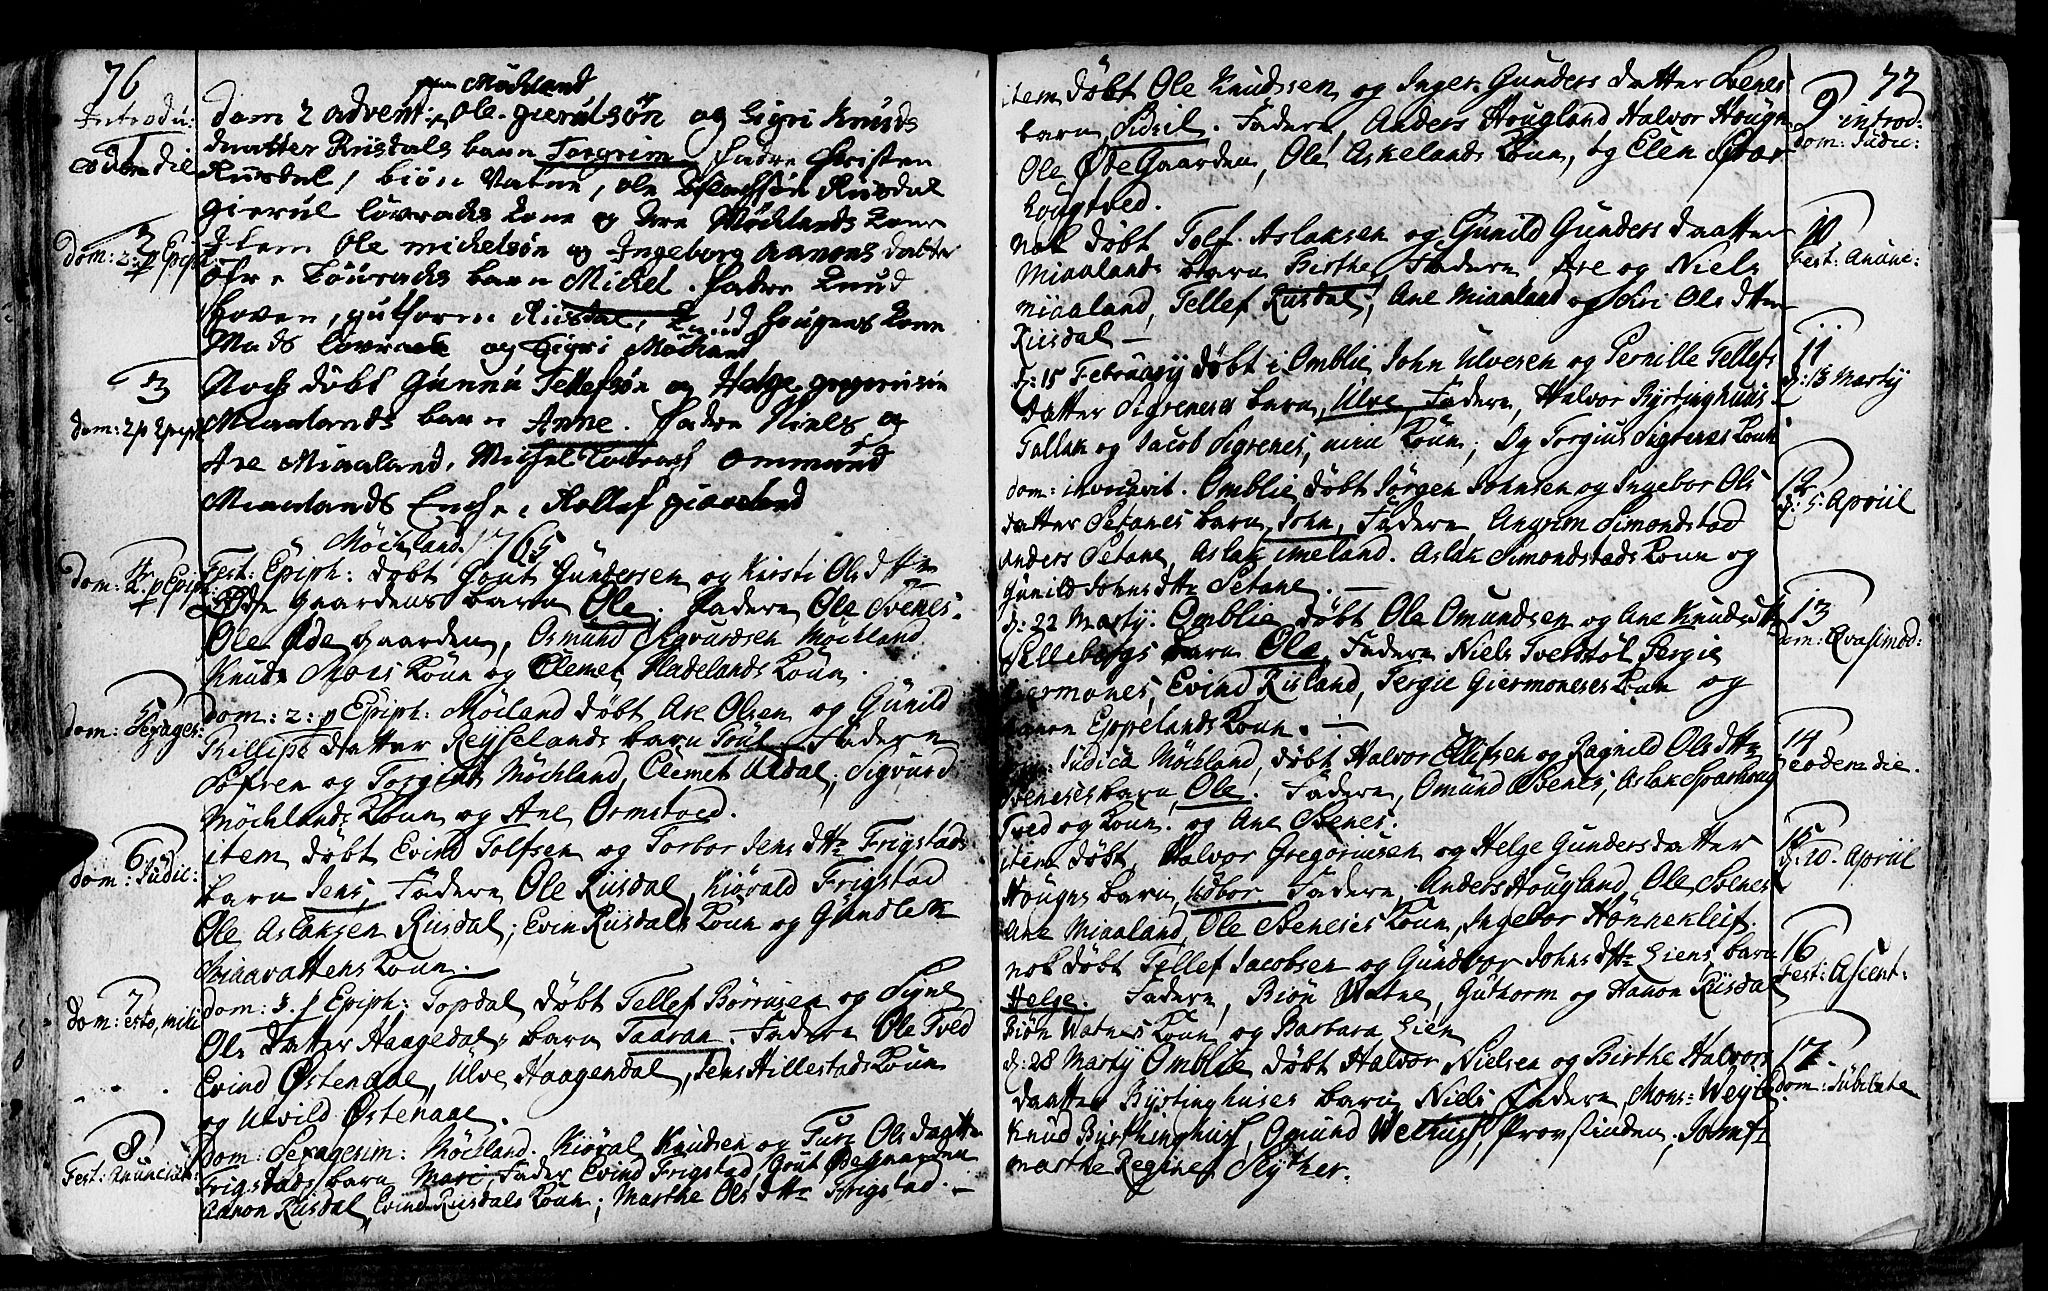 76
Introdu:
1
eodem die
2
dom: 2: p Epiph:
3
dom: 2 p Epiph
4
dom: 2. p Epiph:
5
dom: Sexages:
6
dom: Judic:
7
dom: esto mihi
8
Fest: Anunciat:
Møchland
dom 2 advent: Ole gierulsøn og Sigri Knuds
daatter Riisdals barn Torgrim, fadre Christen
Riisdal, biøn Vatne, ole Riisdal
gierul Lovracks kone og Møchlands kone
Item Ole mickelsøn og Ingeborg aanons datter
Lovracks barn Mickel. fadre Knud
hoven, gutform Riisdal, Knud hougens kone
Mads Lovrack og Sigri Møchland
døbt Gunnu Tellefsøn og Helge
Miaalands barn Anne. fadre Niels og
Are Miaaland, Michel Lovrach ommund
Miaalands Enche, Rollef
Møchland 1765
Fest: Epiph: døbt Gout Gundersen og Kirsti Olsdttr
Øde gaardens barn Ole. Fadere Ole Svenes.
Ole Øde gaarden, Osmund Sigvurdsen Møchland
Knud Koun og Clemet Fladelands Koun.
dom: 2: p Epiph: Møcland døbt Are Olsen og Gunild
Phillips datter Reyselands barn Fadere
Sofren og Torgius Møchland, Clemet Uldal; Sigvurd
Møchlands Koun og Ane Ormstved.
item døbt Evind Tolfsen og Torbor Jens dttr Frigstads
barn Jens, Fadere Ole Riisdal, Kiøvald Frigstad
Ole Aslaksen Riisdal; Evin Riisdals Koun og
Koun.
dom: 3. p Epiph: Topdal døbt Tellef Børrusen og Signe
Ols datter Haagedals barn Taaran. Fadere Ole Tved
Evind Østenaae, Ulve Haagendal, Jens Hillestads Koun
og Utvild Østenaae.
dom: Sexagesim: Møchland. Kiøval Knudsen og Ture Ols daatter
Frigstads barn Mari. Fader Evind Frigstad, Gout Øegaarden
Aanon Riisdal, Evind Riisdals Koun; Marthe Ols dttr Frigstad. —
item døbt Ole Knudssen og Inger Gunders datter Svenes
barn Sidsil. Fadere, Anders Hougland Halvor Hougn
Ole Øde Gaarden, Ole Askelands Koun, og Elen Spar
hougtved.
nok døbt Tolf Aslaksen og Gunild Gunders daatter
Miaalands barn Birthe Fadere, Are og Niels
miaaland, Tellef Riisdal; Ane Miaaland og Siri Ols dttr
Riisdal —
d: 15 Februarij døbt i Omblie, John Ulvesen og Pernille Tellefs
datter Sigrenes barn, Ulve, Fadere, Halvor Rystinghuus
Tallak og Jacob Sigrenes, min Koun; Og Torgius Sigrenes Koun
dom: invocavit. Omblie døbt Jørgen Johnsen og Ingebor Ols
datter Setanes barn John, Fadere Angrim Simondstad
anders Setane, Aslak imeland. Aslak Simondstads Koun og
Gunild Johns dttr Setane. —
d: 22 Martij. Omblie døbt Ole Omundsen og Ane Knudsdttr
Sellebergs barn Ole, Fadere Niels Tvetstøl Tergie
Giermones, Evind Risland, Tergie Giermoneses Koun og
Aanon Eppelands Koun. —
dom: Judica Møchland, døbt Halvor Ellefsen og Ragnild Ols dttr
Svenes barn, Ole. Fadere, Omund Svenes, Aslak Sparhoug
Tved og Koun. og Ane Svenes.
item døbt, Halvor Gregoriusen og Helge Gunders datter
Hougns barn, Udbor. Fadere, Anders Hougland, Ole Svenes
Ane Miaaland, Ole Sveneses Koun, Ingebor Hønnekleif.
nok døbt Tellef Jacobsen og Gundvor Johns dttr Liens barn
Helge. Fadere, Biøn Watne, Guthorm og Aanon Riisdal
Biøn Watnes Koun og Barbara Lien
d: 28 Martij Omblie døbt Halvor Nielsen og Birthe Halvors
daatter Rystinghuses barn Niels Fadere, Mons: Weyle
Knud Rysthinghuss, Omund Welhuss, Provstinden. Jomfr
marthe Regine Slyther.
77
9
introd:
dom: Judic:
10
Fest: Anunc:
11
d: 13 Martij
12
d: 5 Apriil
13
dom: Qvasimod:
14
eodem die.
15
d: 20 Apriil
16
Fest: Ascent:
17
dom: Jubilate